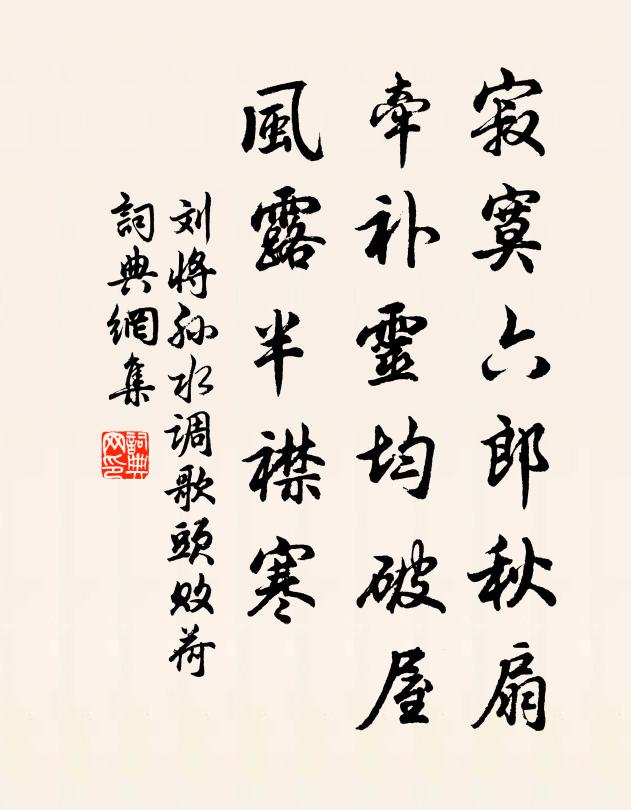 寂寞六郎秋扇
牽补靈均破屋
風露半襟寒
刘将孙水调歌頭败荷
詞典網集
詞典网印